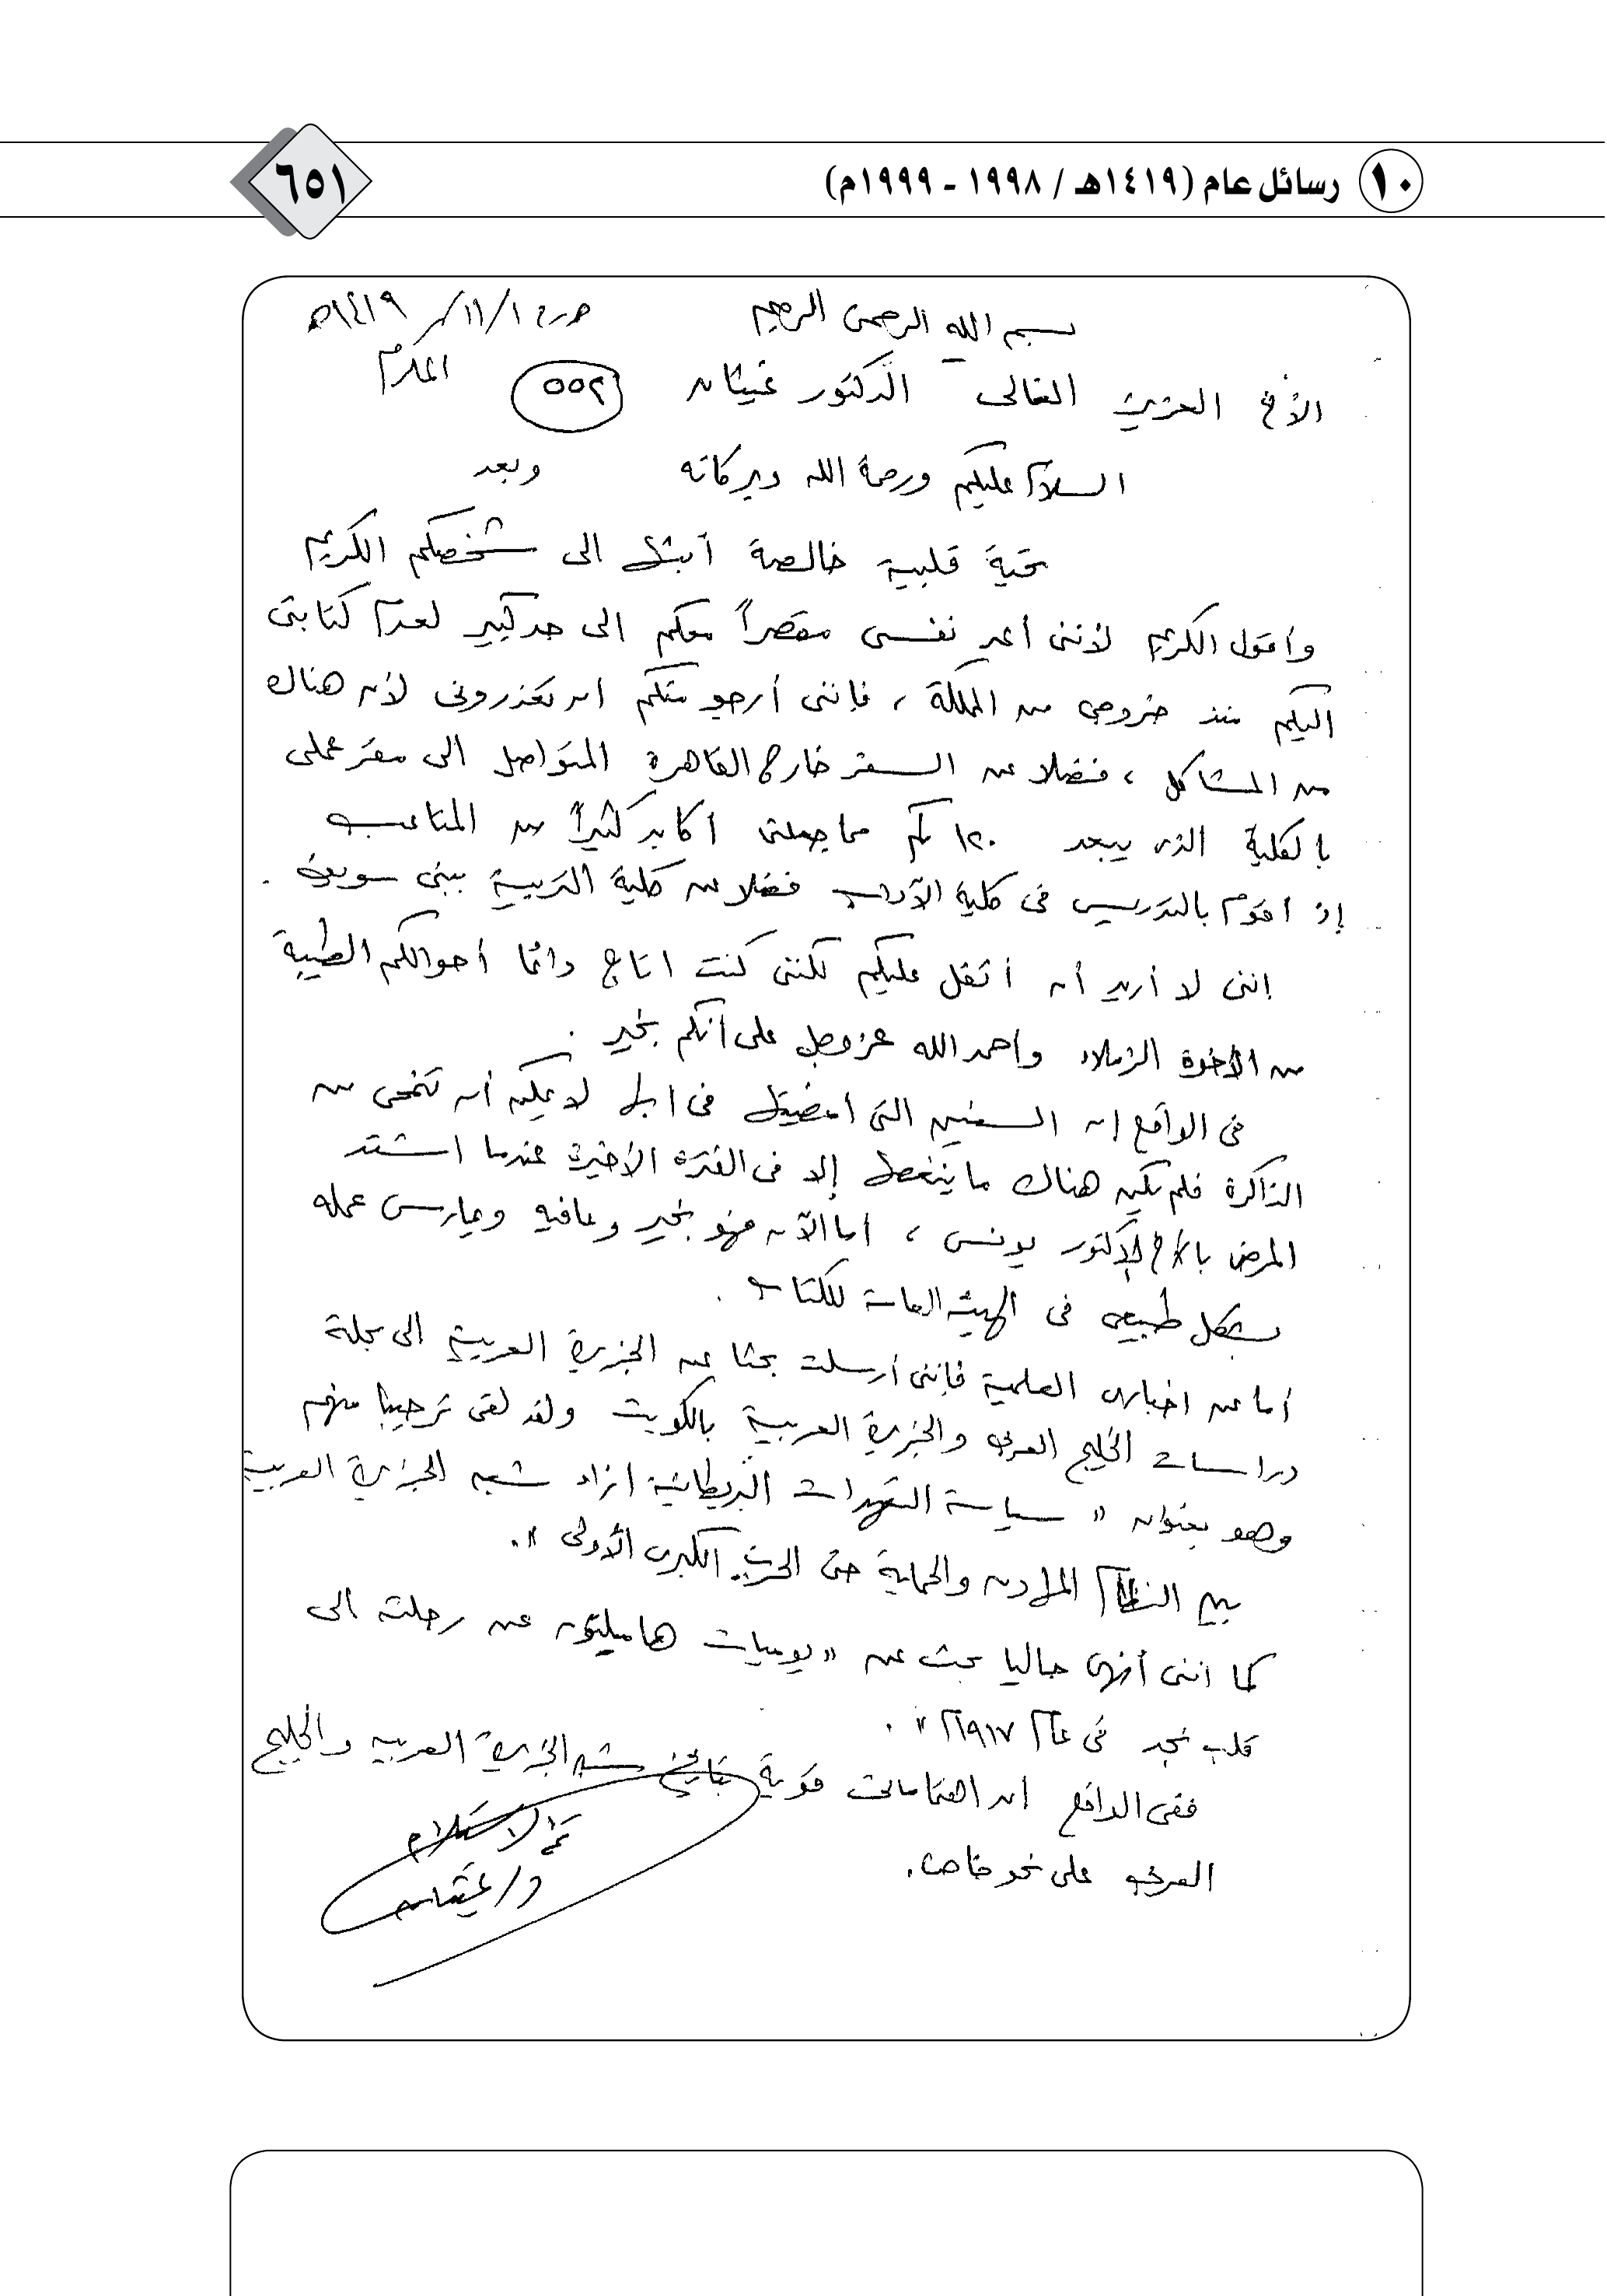 ١٠ رسائل عام (١٤١٩هـ / ١٩٩٨ - ١٩٩٩م)
٦٥١
بسم الله الرحمن الرحيم
١٤١٩هـ
الأخ العزيز الغالى الدكتور غيثان المكرم
٥٥٢
السلام عليكم ورحمة الله وبركاته وبعد
تحية قلبية خالصة أبثها الى شخصكم الكريم
وأقول الكريم لأننى أعد نفسى مقصراً معكم الى حد كبير لعدم كتابتى
اليكم منذ خروجى من المملكة ، فإننى أرجو منكم ان تعذرونى لأن هناك
من المشاكل ، فضلا عن السفر خارج القاهرة المتواصل الى مقر عملى
بالكلية الذى يبعد ١٢٠ كم مما جعلنى أكابد كثيراً من المتاعب
إذ اقوم بالتدريس فى كلية الآداب فضلا عن كلية التربية ببنى سويف .
إننى لا أريد أن أثقل عليكم لكننى كنت اتابع دائما أحوالكم الطيبة
من الأخوة الزملاء واحمد الله عز وجل على أنكم بخير .
فى الواقع ان السنين التى امضيتها فى ابها لا يمكن أن تنمحى من
الذاكرة فلم يكن هناك ما ينغصها إلا فى الفترة الأخيرة عندما اشتد
المرض بالأخ الدكتور يونس ، اما الآن فهو بخير وعافيه ويمارس عمله
بشكل طبيعى فى الهيئة العامة للكتاب .
أما عن اخبارى العلمية فإننى أرسلت بحثا عن الجزيرة العربية الى مجلة
دراسات الخليج العربى والجزيرة العربية بالكويت ولقد لقى ترحيبا منهم
وهو بعنوان " سياسة التعهدات البريطانية ازاء شبه الجزيرة العربية
بين النظام والحماية حتى الحرب الكبرى الأولى " .
كما اننى أنهى حاليا بحث عن " يوميات هاميلتون عن رحلته الى
قلب نجد فى عام ١٩١٧م " .
ففى الواقع ان اهتماماتى قوية بتاريخ شبه الجزيرة العربيه والخليج
العربى على نحو خاص .
د/